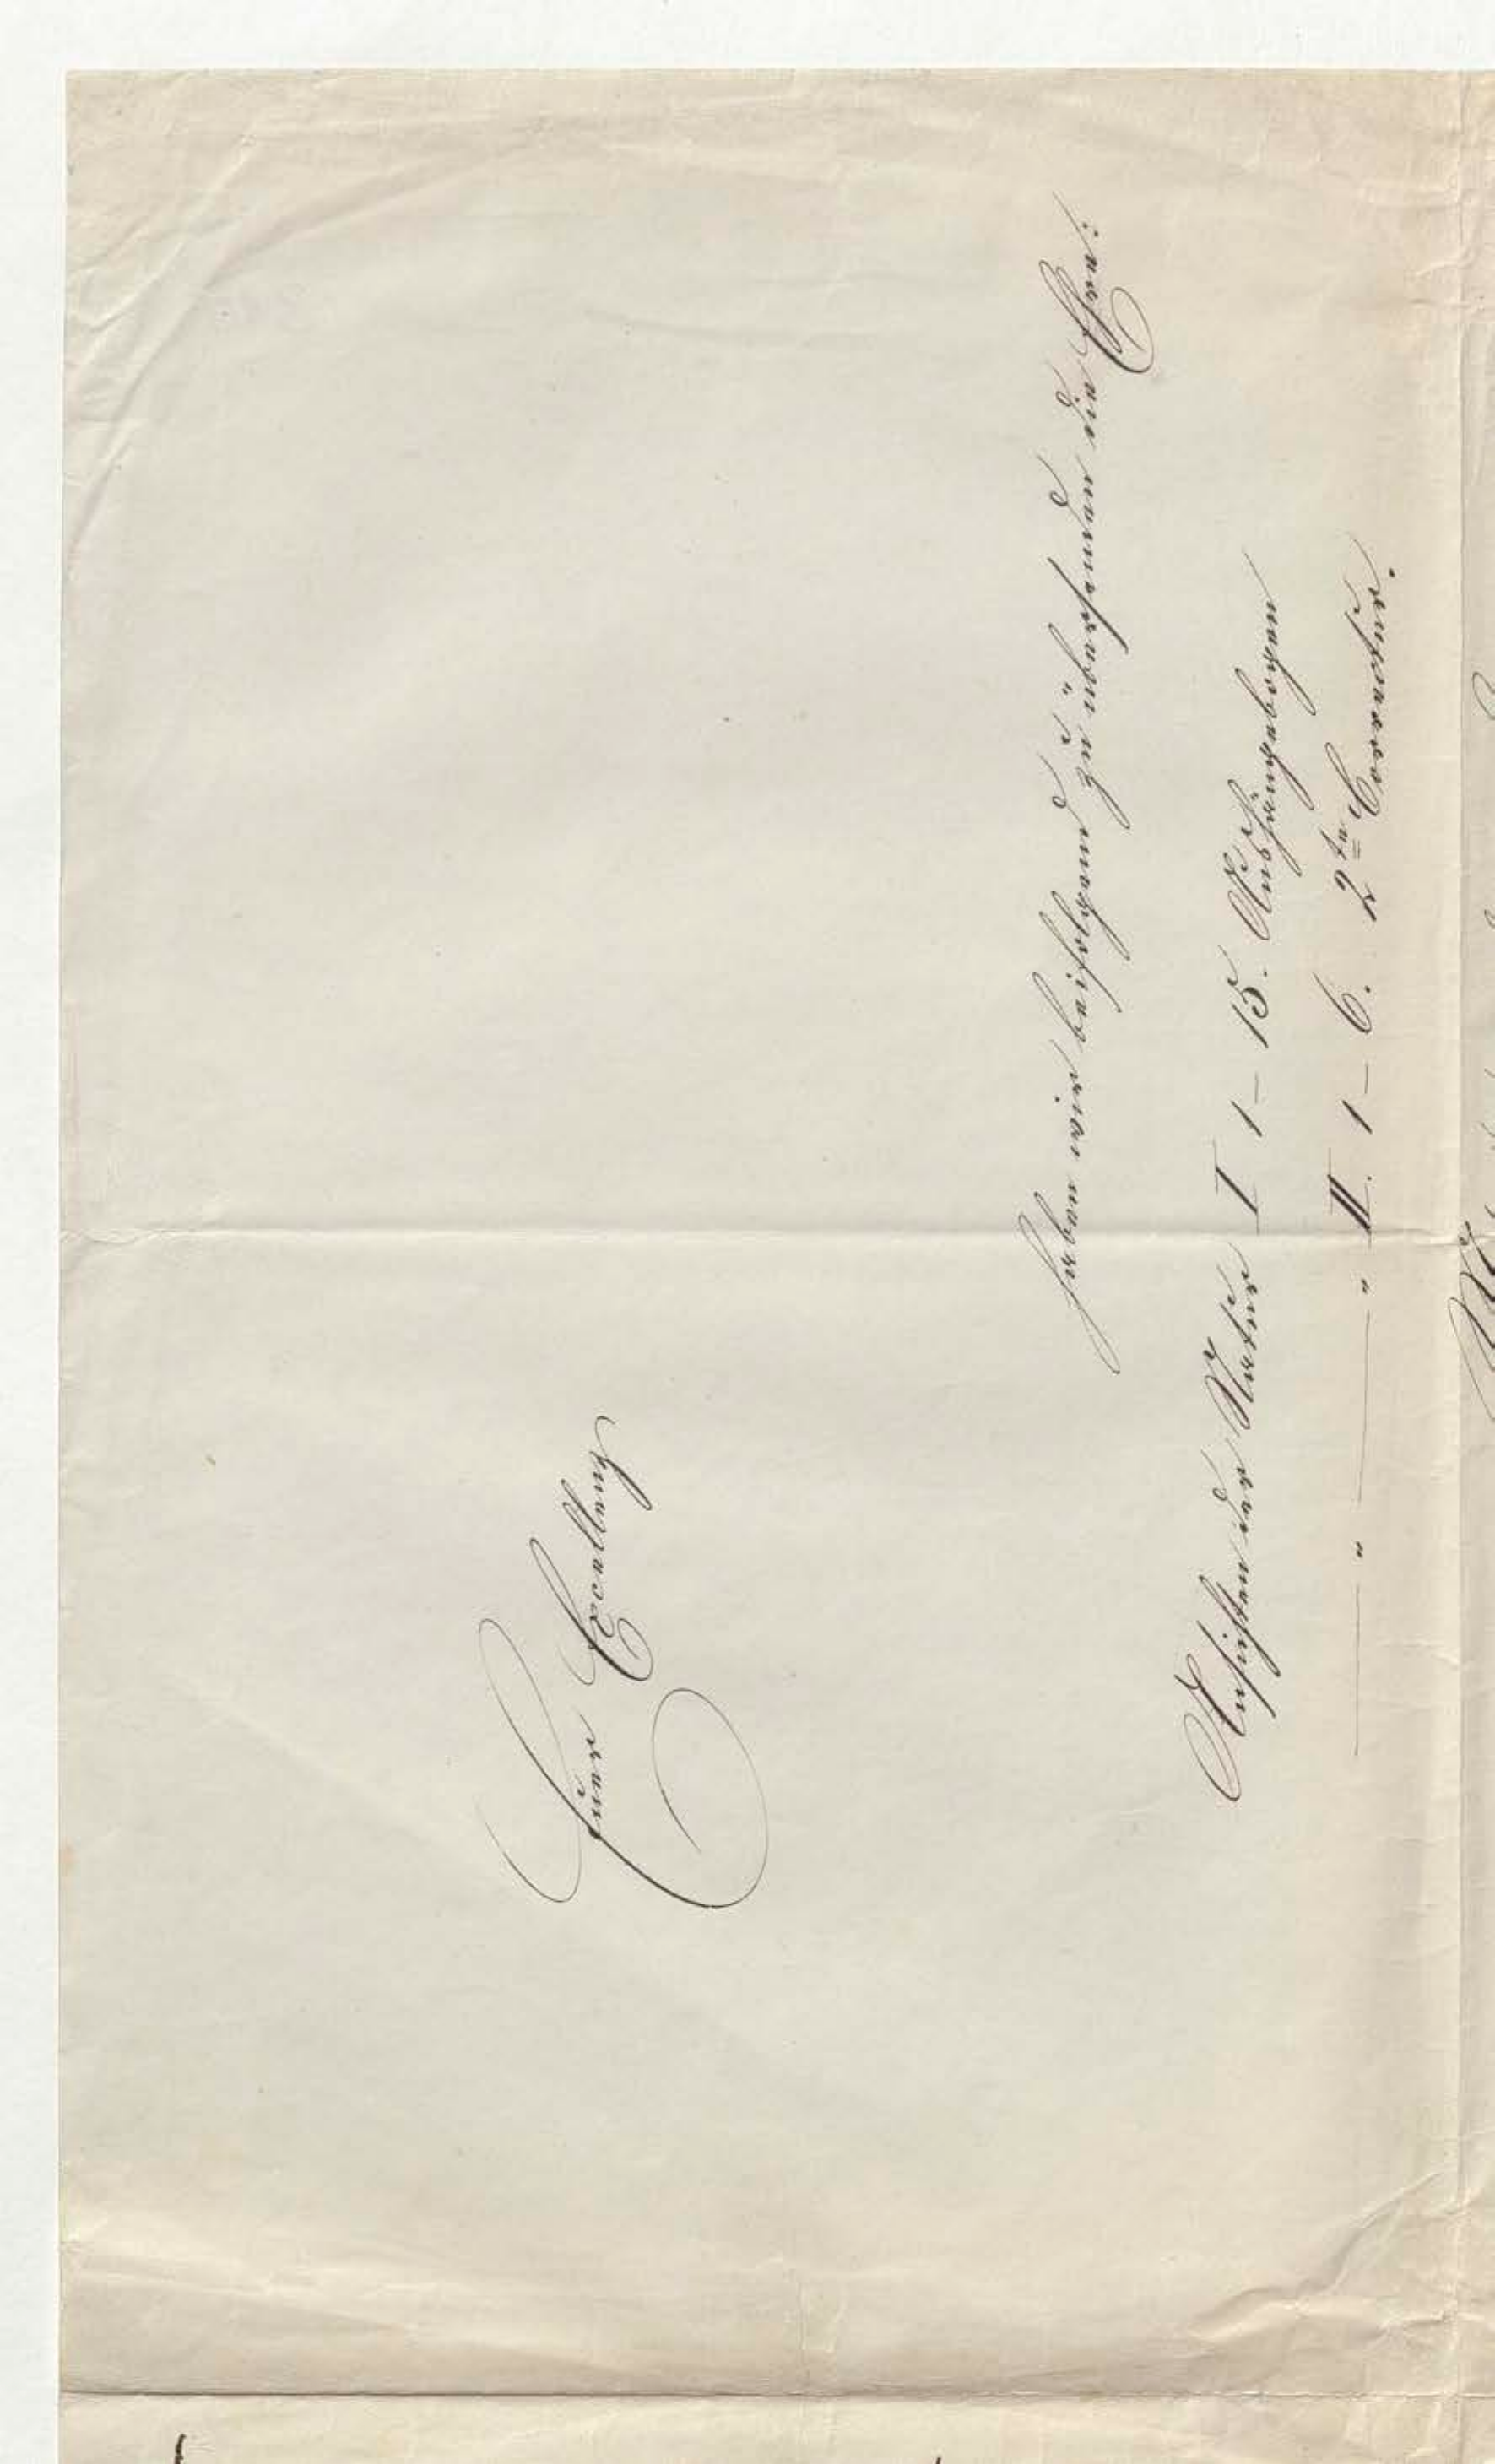 Euer Excellenz
haben wir beifolgend zu übersenden die Ehre:
Ansichten der Natur I 1 – 15. Aushängebogen
— " — " II. 1 – 6. 2te Correctur.